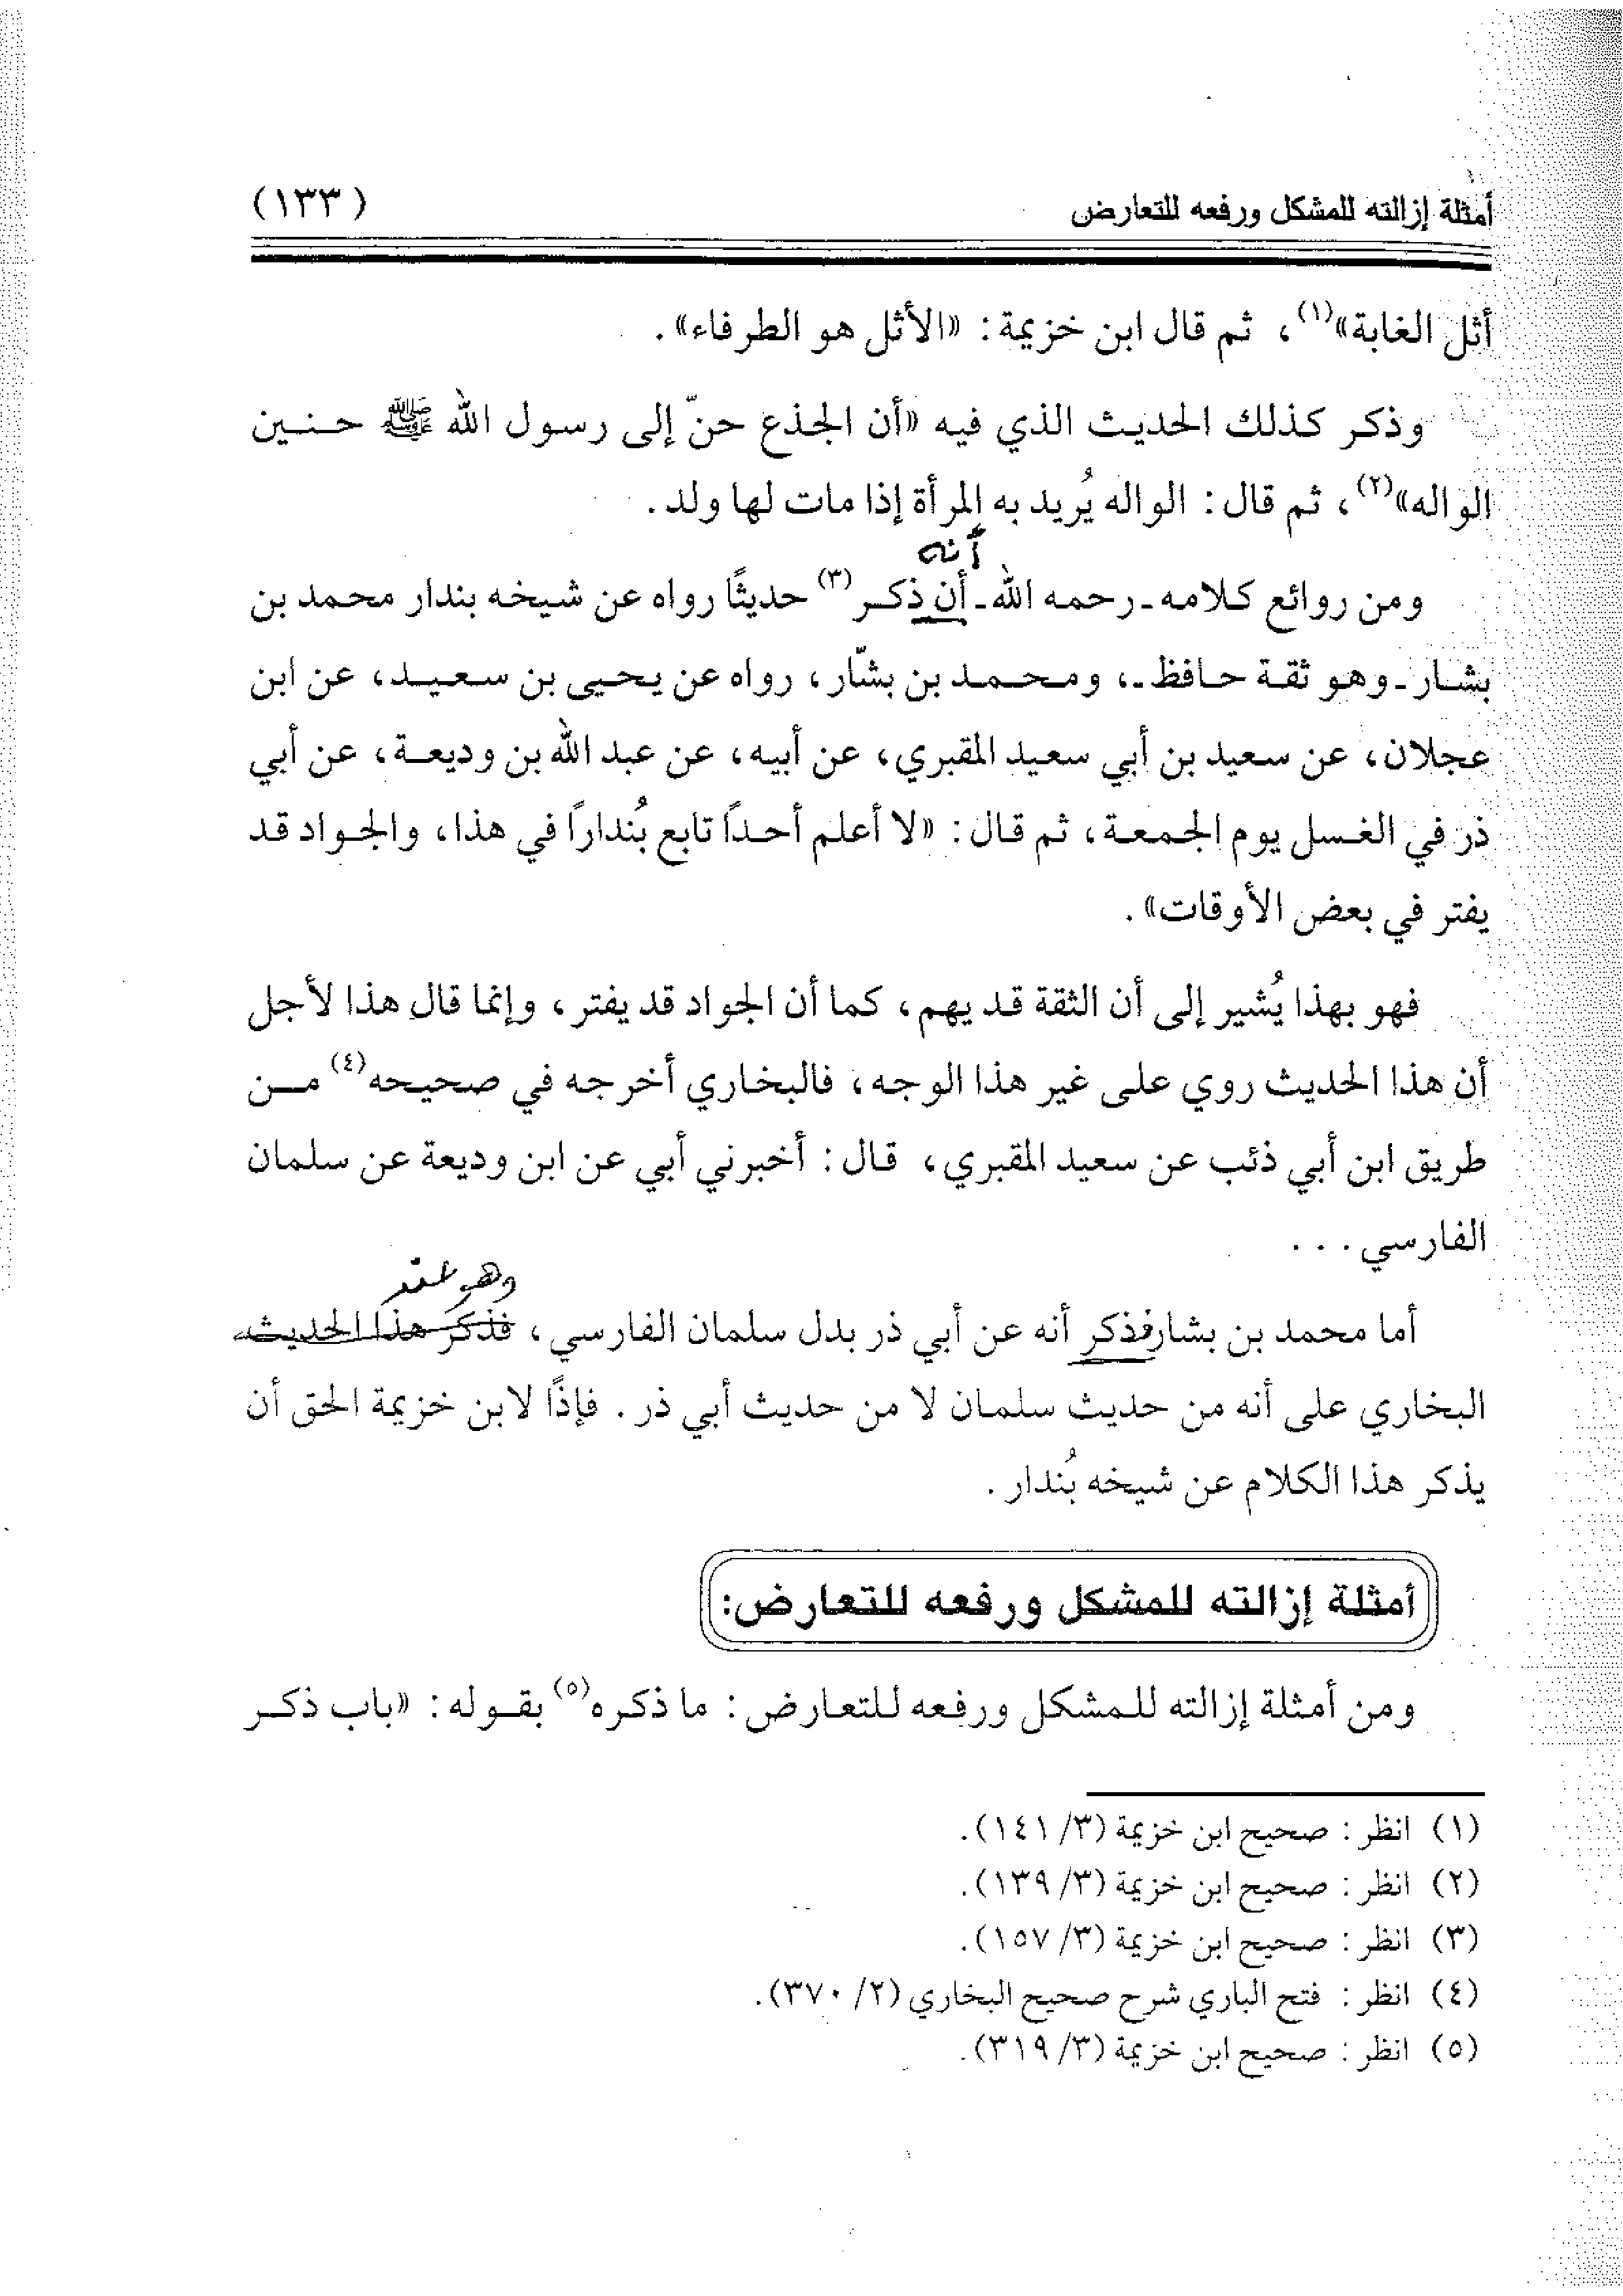 أمثلة إزالته للمشكل ورفعه للتعارض (١٣٣)
أثل الغابة»(١)، ثم قال ابن خزيمة: «الأثل هو الطرفاء».
وذكر كذلك الحديث الذي فيه «أن الجذع حنّ إلى رسول الله ﷺ حنين
الواله»(٢)، ثم قال: الواله يُريد به المرأة إذا مات لها ولد.
أنه
ومن روائع كلامه ـ رحمه الله ـ أن ذكر(٣) حديثًا رواه عن شيخه بندار محمد بن
بشار ـ وهو ثقة حافظ ـ، ومحمد بن بشّار، رواه عن يحيى بن سعيد، عن ابن
عجلان، عن سعيد بن أبي سعيد المقبري، عن أبيه، عن عبد الله بن وديعة، عن أبي
ذر في الغسل يوم الجمعة، ثم قال: «لا أعلم أحداً تابع بُنداراً في هذا، والجواد قد
يفتر في بعض الأوقات».
فهو بهذا يُشير إلى أن الثقة قد يهم، كما أن الجواد قد يفتر، وإنما قال هذا لأجل
أن هذا الحديث روي على غير هذا الوجه، فالبخاري أخرجه في صحيحه(٤) من
طريق ابن أبي ذئب عن سعيد المقبري، قال: أخبرني أبي عن ابن وديعة عن سلمان
الفارسي . . .
وهو عند
أما محمد بن بشار فذكر أنه عن أبي ذر بدل سلمان الفارسي، فذكر هذا الحديث
البخاري على أنه من حديث سلمان لا من حديث أبي ذر. فإذًا لابن خزيمة الحق أن
يذكر هذا الكلام عن شيخه بُندار.
أمثلة إزالته للمشكل ورفعه للتعارض:
ومن أمثلة إزالته للمشكل ورفعه للتعارض: ما ذكره(٥) بقوله: «باب ذكر
(١) انظر: صحيح ابن خزيمة (٣/ ١٤١).
(٢) انظر: صحيح ابن خزيمة (٣/ ١٣٩).
(٣) انظر: صحيح ابن خزيمة (٣/ ١٥٧).
(٤) انظر: فتح الباري شرح صحيح البخاري (٢/ ٣٧٠).
(٥) انظر: صحيح ابن خزيمة (٣/ ٣١٩).